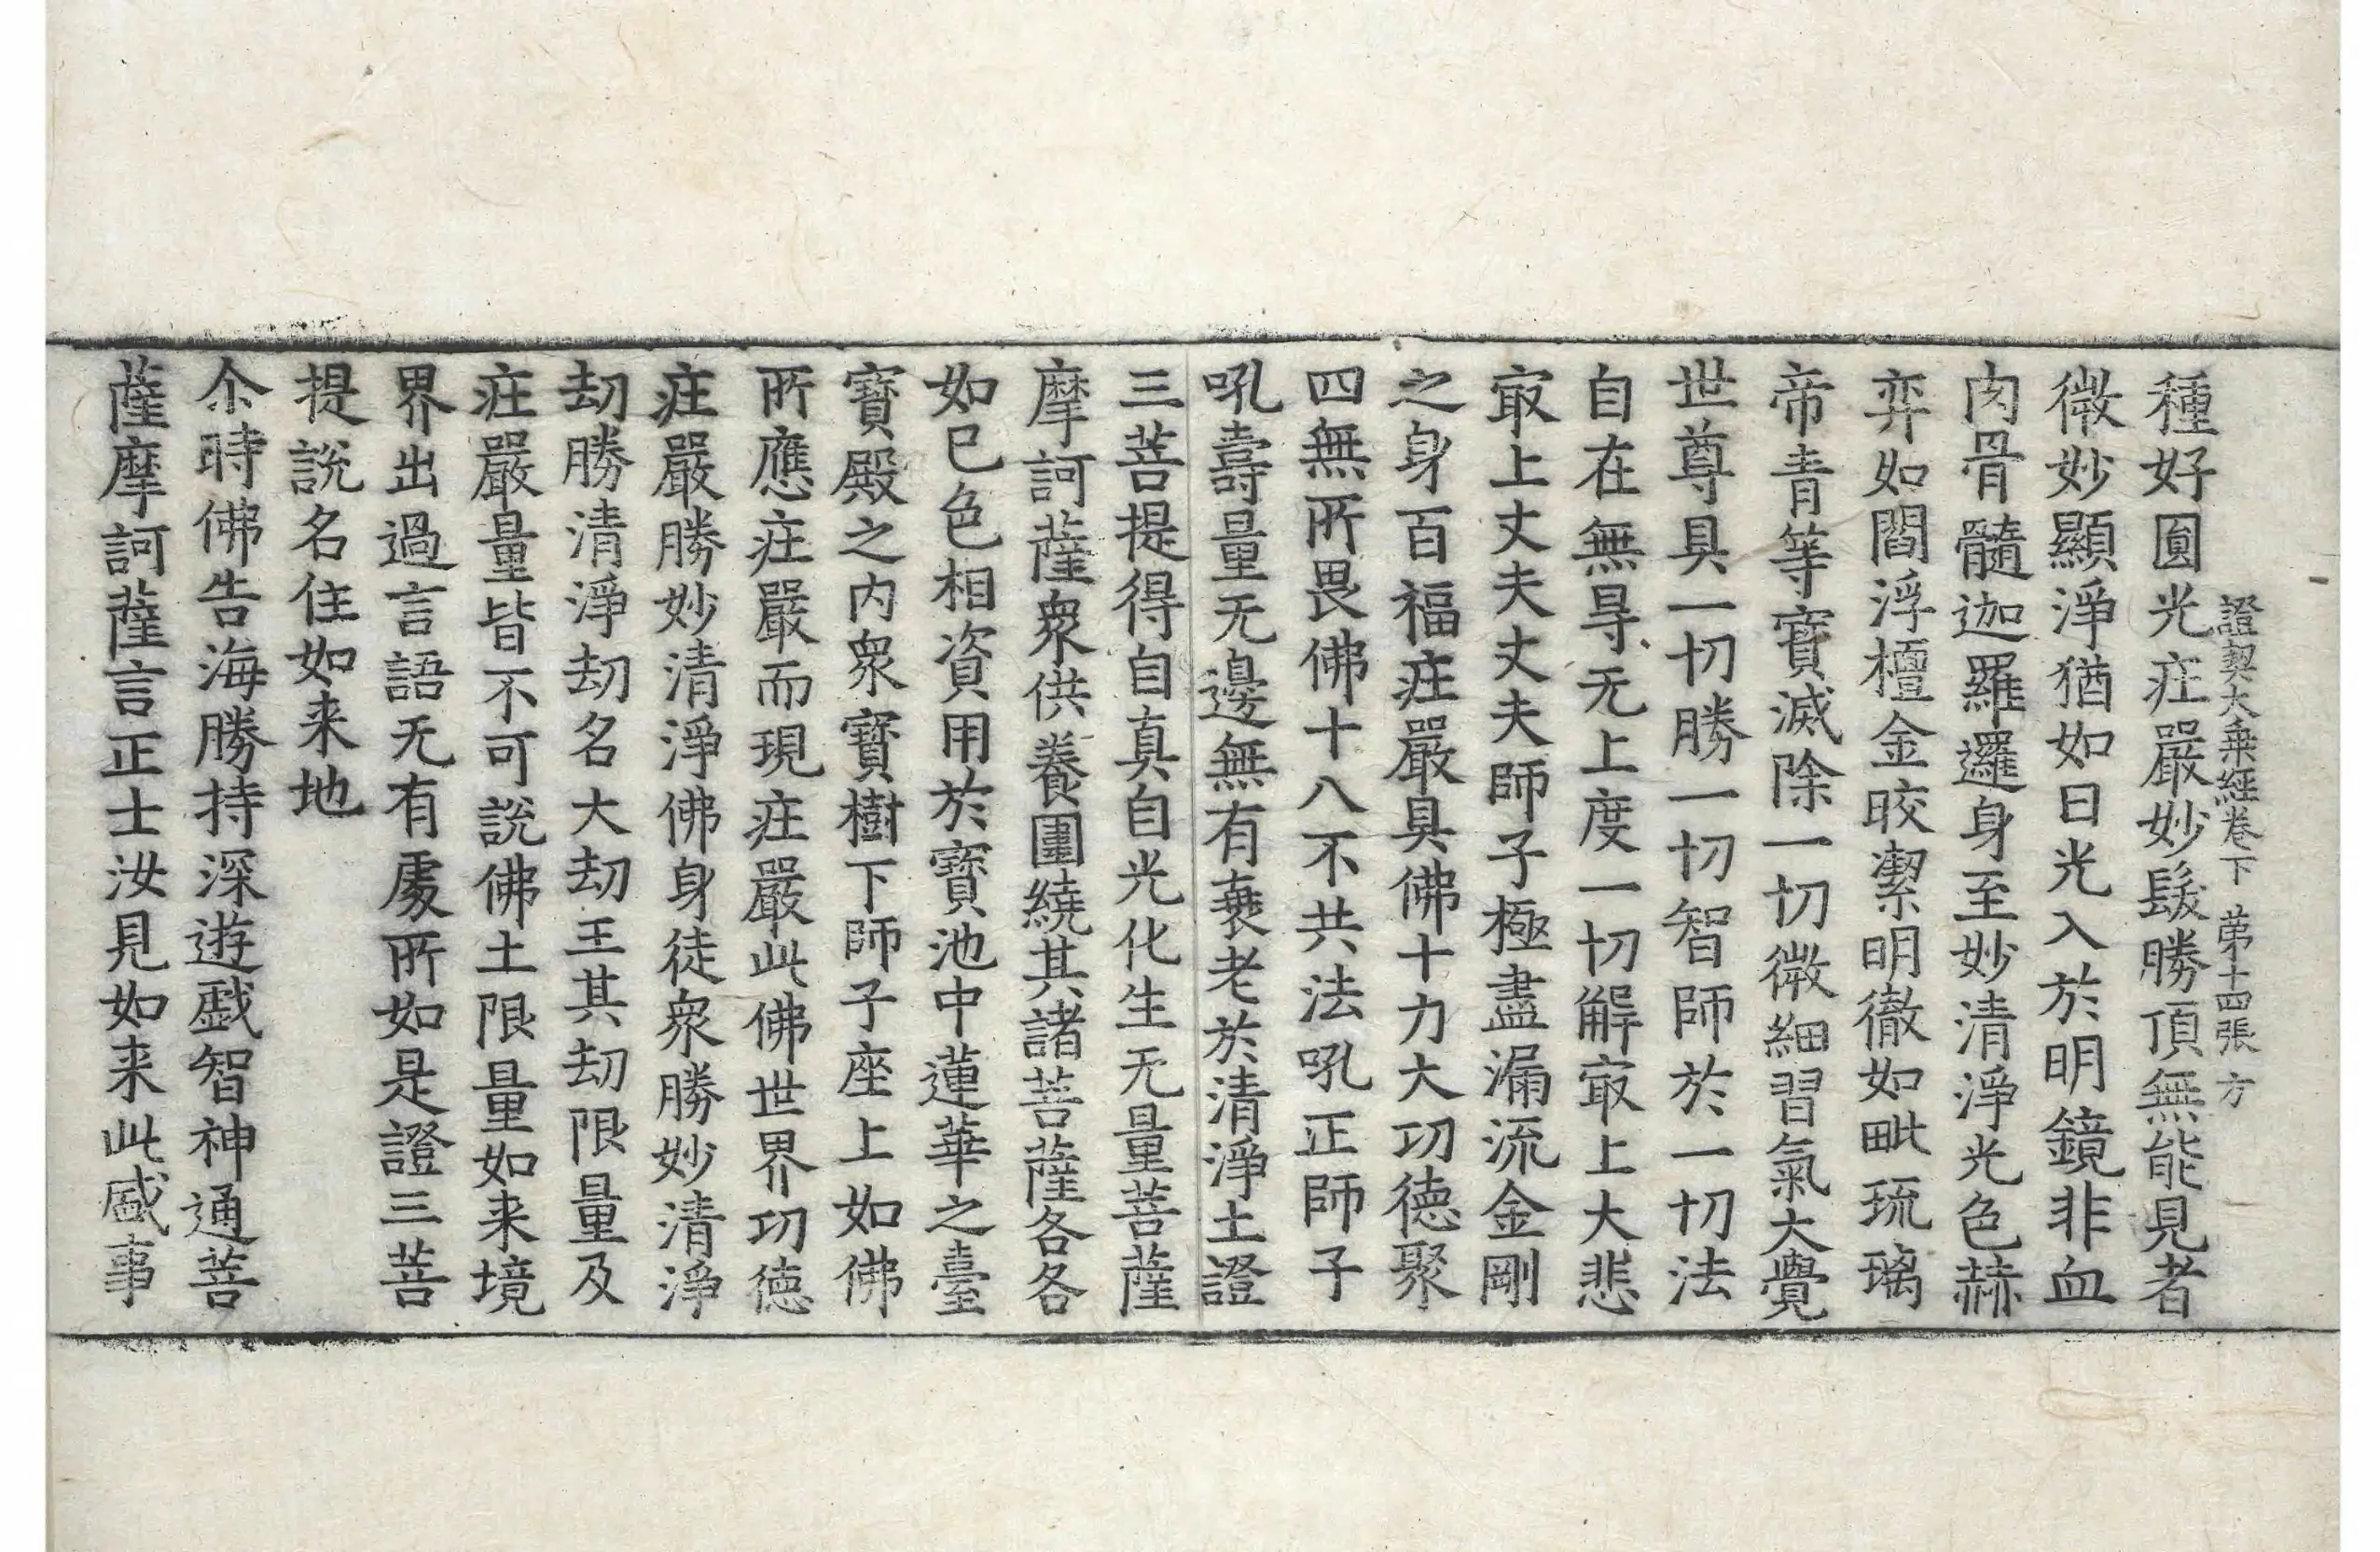 證契大乗經卷下 苐十四張 方
種好圎光疘嚴妙髮勝頂無能見者
微妙顯淨猶如日光入於明鏡非血
肉骨髓迦羅邏身至妙清淨光色赫
弈如閻浮檀金晈潔明徹如毗琉璃
帝青等寶滅除一切微細習氣大覺
世尊具一切勝一切智師於一切法
自在無㝵无上度一切解㝡上大悲
㝡上丈夫丈夫師子極盡漏流金剛
之身百福疘嚴具佛十力大功德聚
四無所畏佛十八不共法吼正師子
吼壽量无邊無有衰老於清淨土證
三菩提得自真自光化生无量菩薩
摩訶薩衆供養圍繞其諸菩薩各各
如巳色相資用於寶池中蓮華之臺
寶殿之內衆寶樹下師子座上如佛
所應疘嚴而現疘嚴此佛世界功德
疘嚴勝妙清淨佛身徒衆勝妙清淨
劫勝清淨劫名大劫王其劫限量及
疘嚴量皆不可說佛土限量如来境
界出過言語无有處所如是證三菩
提說名住如来地
尒時佛告海勝持深遊戲智神通菩
薩摩訶薩言正士汝見如来此盛事